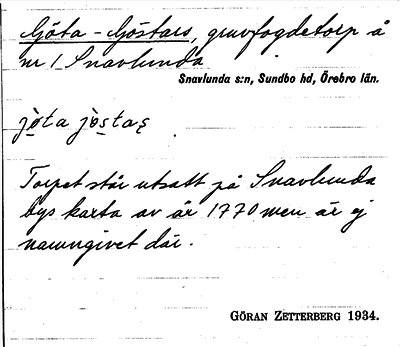 Göta - Göstars, gruvfogdetorp å
nr 1 Snavlunda
Snavlunda s:n, Sundbo hd, Örebro län.
jò̤ta jò̤staş
Torpet står utsatt på Snavlunda
bys karta av år 1770 men är ej
namngivet där.
GÖRAN ZETTERBERG 1934.